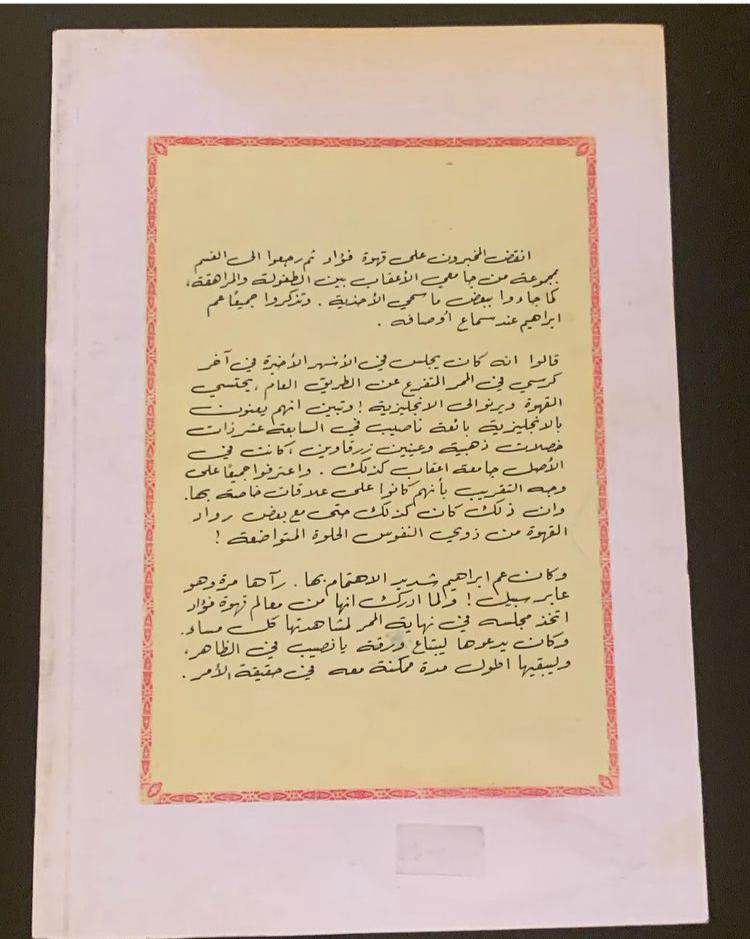 انقض المخبرون على قهوة فؤاد ثم رجعوا الى القسم
بمجموعة من جامعي الأعقاب بين الطفولة والمراهقة،
كما جاءوا ببعض ماسحي الأحذية . وتذكروا جميعًا عم
ابراهيم عند سماع أوصافه .
قالوا انه كان يجلس في الأشهر الأخيرة في آخر
كرسي في الممر المتفرع عن الطريق العام ، يحتسي
القهوة ويرنو الى الانجليزية ! وتبين انهم يعنون
بالانجليزية بائعة ناصيب في السابعة عشر ذات
خصلات ذهبية وعينين زرقاوين ، كانت في
الأصل جامعة اعقاب كذلك . واعترفوا جميعًا على
وجه التقريب بأنهم كانوا على علاقات خاصة بها.
وان ذلك كان كذلك حتى مع بعض رواد
القهوة من ذوي النفوس الحلوة المتواضعة !
وكان عم ابراهيم شديد الاهتمام بها . رآها مرة وهو
عابر سبيل ! ولما ادرك انها من معالم قهوة فؤاد
اتخذ مجلسه في نهاية الممر لمشاهدتها كل مساء.
وكان يدعوها ليبتاع ورقة يانصيب في الظاهر،
وليبقيها اطول مدة ممكنة معه في حقيقة الأمر .